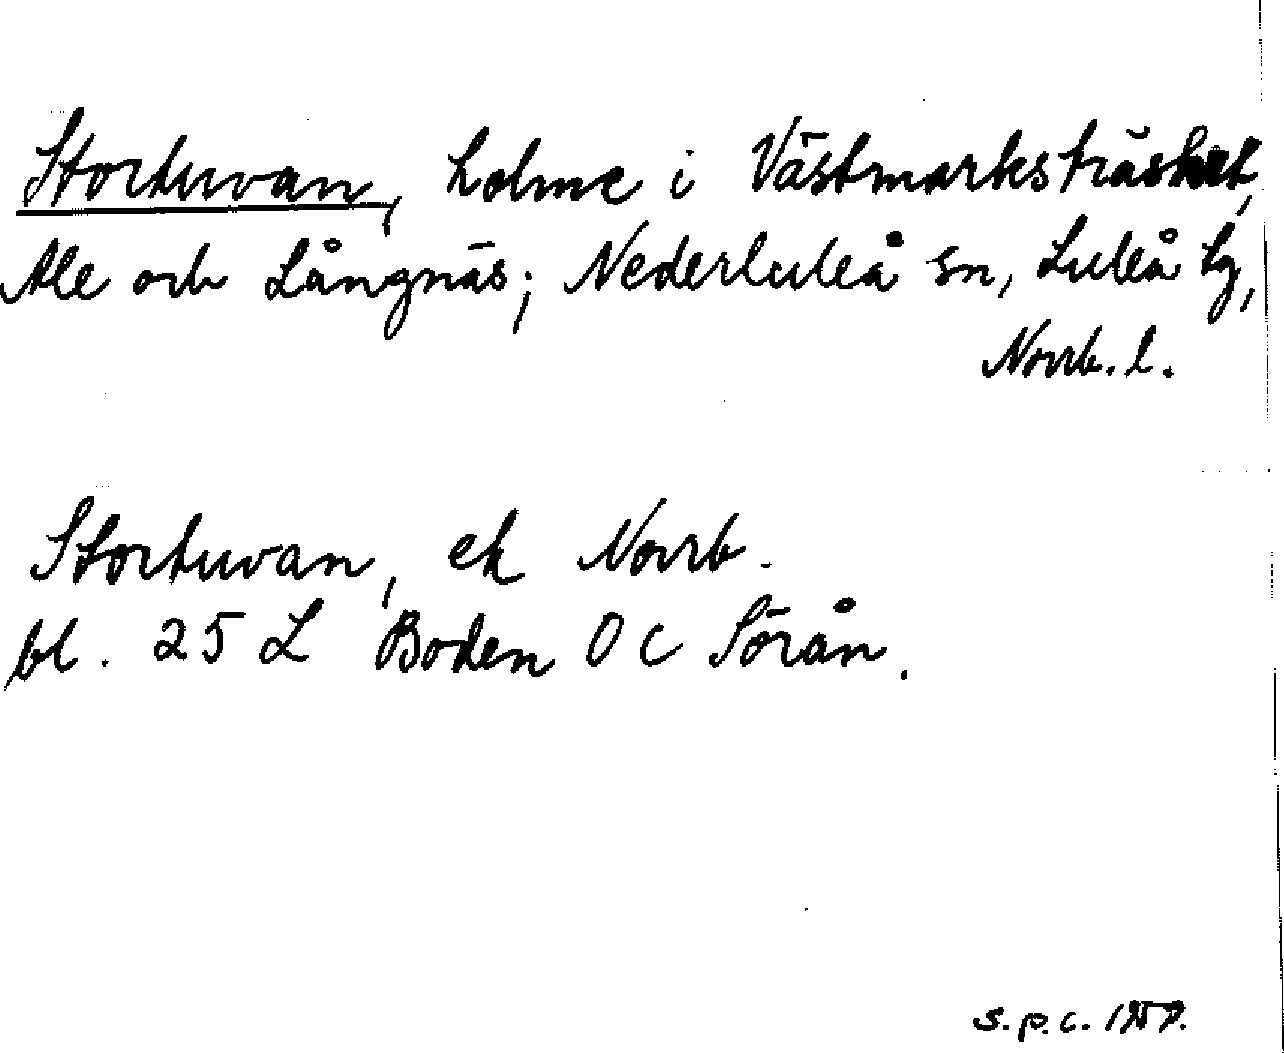 Stortuvan, holme i Västmarksträsket,
Ale och Långnäs; Nederluleå sn, Luleå tg,
Norrb. l.
Stortuvan, ek Norrb.
bl. 25 L Boden 0 c Sörån.
s.p.c. 1957.